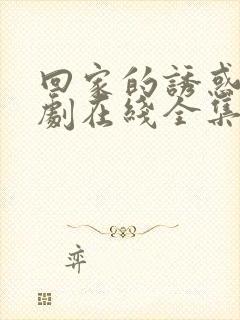 回家的誘惑
劇在綫全集
弈